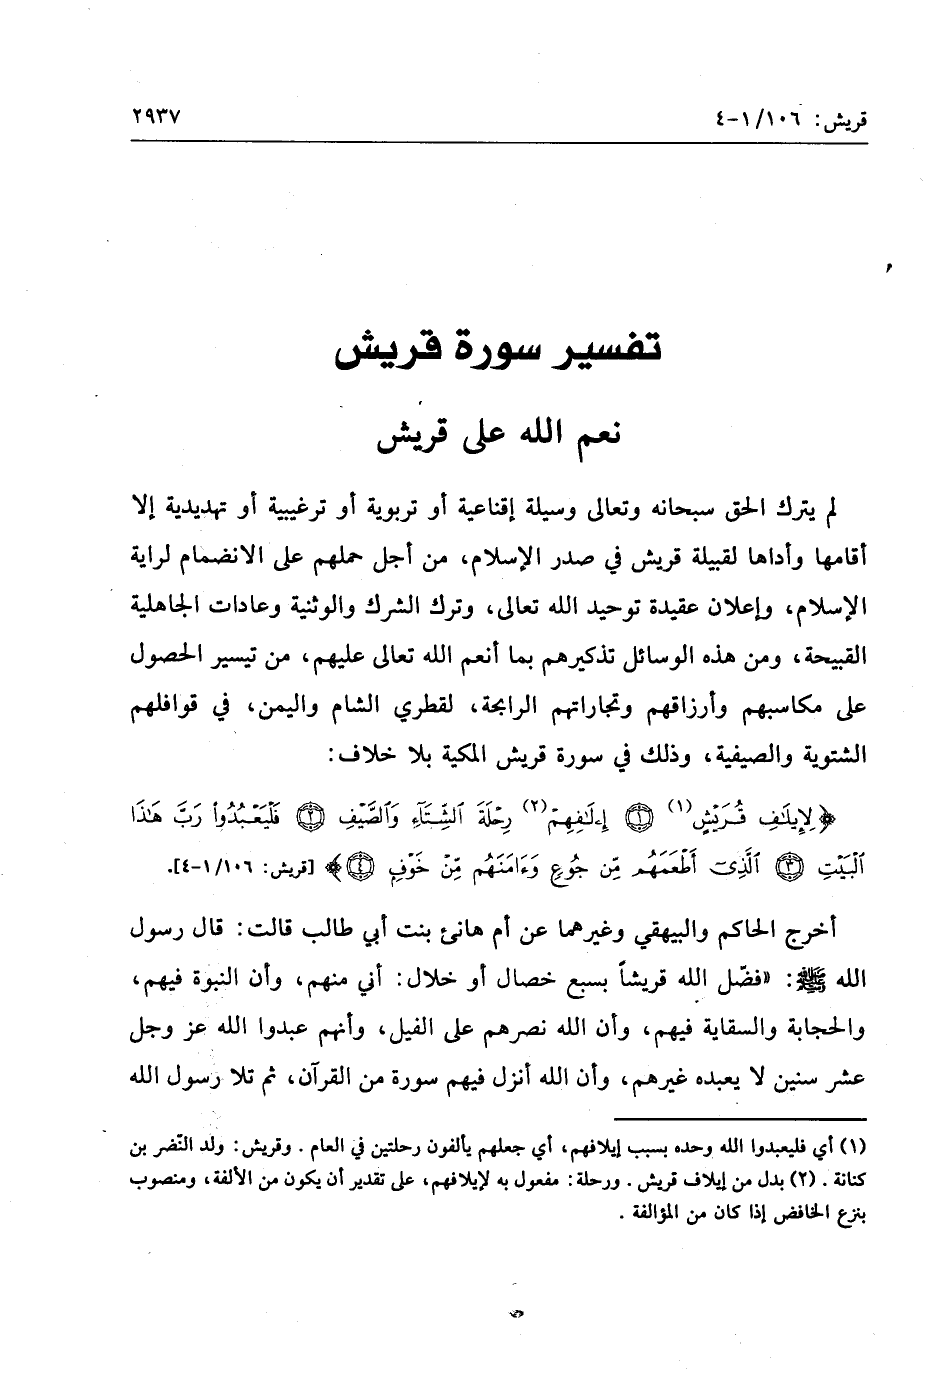 قريش: ١٠٦/ ١-٤
٢٩٣٧
تفسير سورة قريش
نعم الله على قريش
لم يترك الحق سبحانه وتعالى وسيلة إقناعية أو تربوية أو ترغيبية أو تهديدية إلا
أقامها وأداها لقبيلة قريش في صدر الإسلام، من أجل حملهم على الانضمام لراية
الإسلام، وإعلان عقيدة توحيد الله تعالى، وترك الشرك والوثنية وعادات الجاهلية
القبيحة، ومن هذه الوسائل تذكيرهم بما أنعم الله تعالى عليهم، من تيسير الحصول
على مكاسبهم وأرزاقهم وتجاراتهم الرابحة، لقطري الشام واليمن، في قوافلهم
الشتوية والصيفية، وذلك في سورة قريش المكية بلا خلاف:
﴿لِإِيلَٰفِ قُرَيْشٍ(١) ۝١ إِۦلَٰفِهِمْ(٢) رِحْلَةَ ٱلشِّتَآءِ وَٱلصَّيْفِ ۝٢ فَلْيَعْبُدُوا۟ رَبَّ هَٰذَا
ٱلْبَيْتِ ۝٣ ٱلَّذِىٓ أَطْعَمَهُم مِّن جُوعٍ وَءَامَنَهُم مِّنْ خَوْفٍ ۝٤﴾ [قريش: ١٠٦/ ١-٤].
أخرج الحاكم والبيهقي وغيرهما عن أم هانئ بنت أبي طالب قالت: قال رسول
الله ﷺ: «فضّل الله قريشاً بسبع خصال أو خلال: أني منهم، وأن النبوة فيهم،
والحجابة والسقاية فيهم، وأن الله نصرهم على الفيل، وأنهم عبدوا الله عز وجل
عشر سنين لا يعبده غيرهم، وأن الله أنزل فيهم سورة من القرآن، ثم تلا رسول الله
(١) أي فليعبدوا الله وحده بسبب إيلافهم، أي جعلهم يألفون رحلتين في العام. وقريش: ولد النّضر بن
كنانة. (٢) بدل من إيلاف قريش. ورحلة: مفعول به لإيلافهم، على تقدير أن يكون من الألفة، ومنصوب
بنزع الخافض إذا كان من المؤالفة.